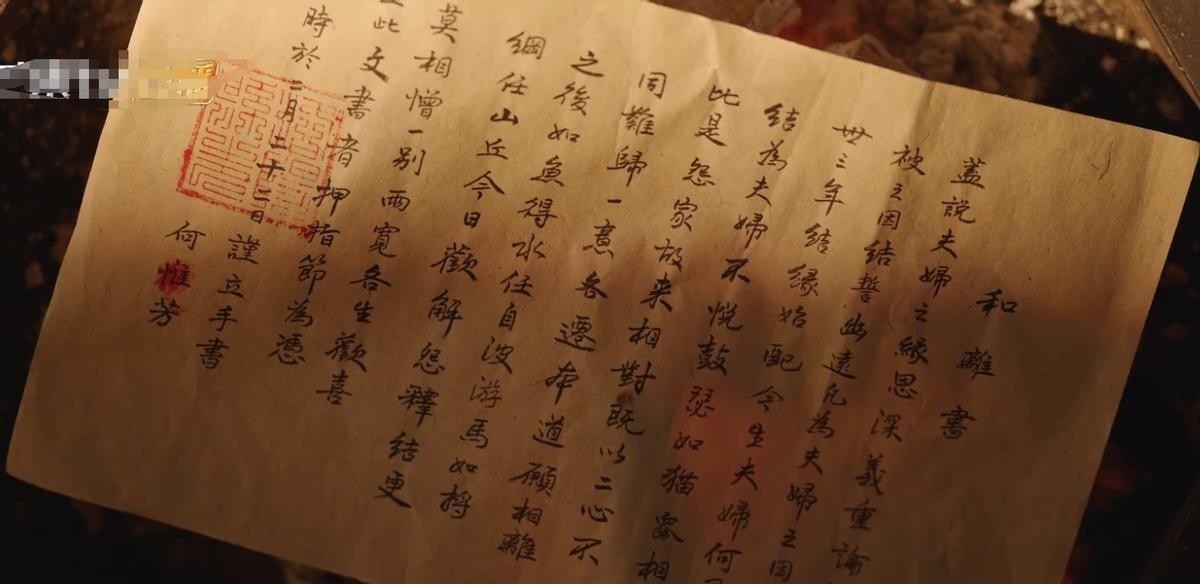 和離書
蓋說夫婦之緣恩深義重論
被之因結誓幽遠凡為夫婦之因
卅三年結緣始配今生夫婦何
結為夫婦不悅鼓瑟如猫鼠相
比是怨家故来相對既以二心不
同難歸一意各遷本道願相離
之後如魚得水任自波游馬如捋
綱任山丘今日歡解怨釋結更
莫相憎一別兩寬各生歡喜
此文書者押指節為憑
時於二月二十三日謹立手書
何惟芳